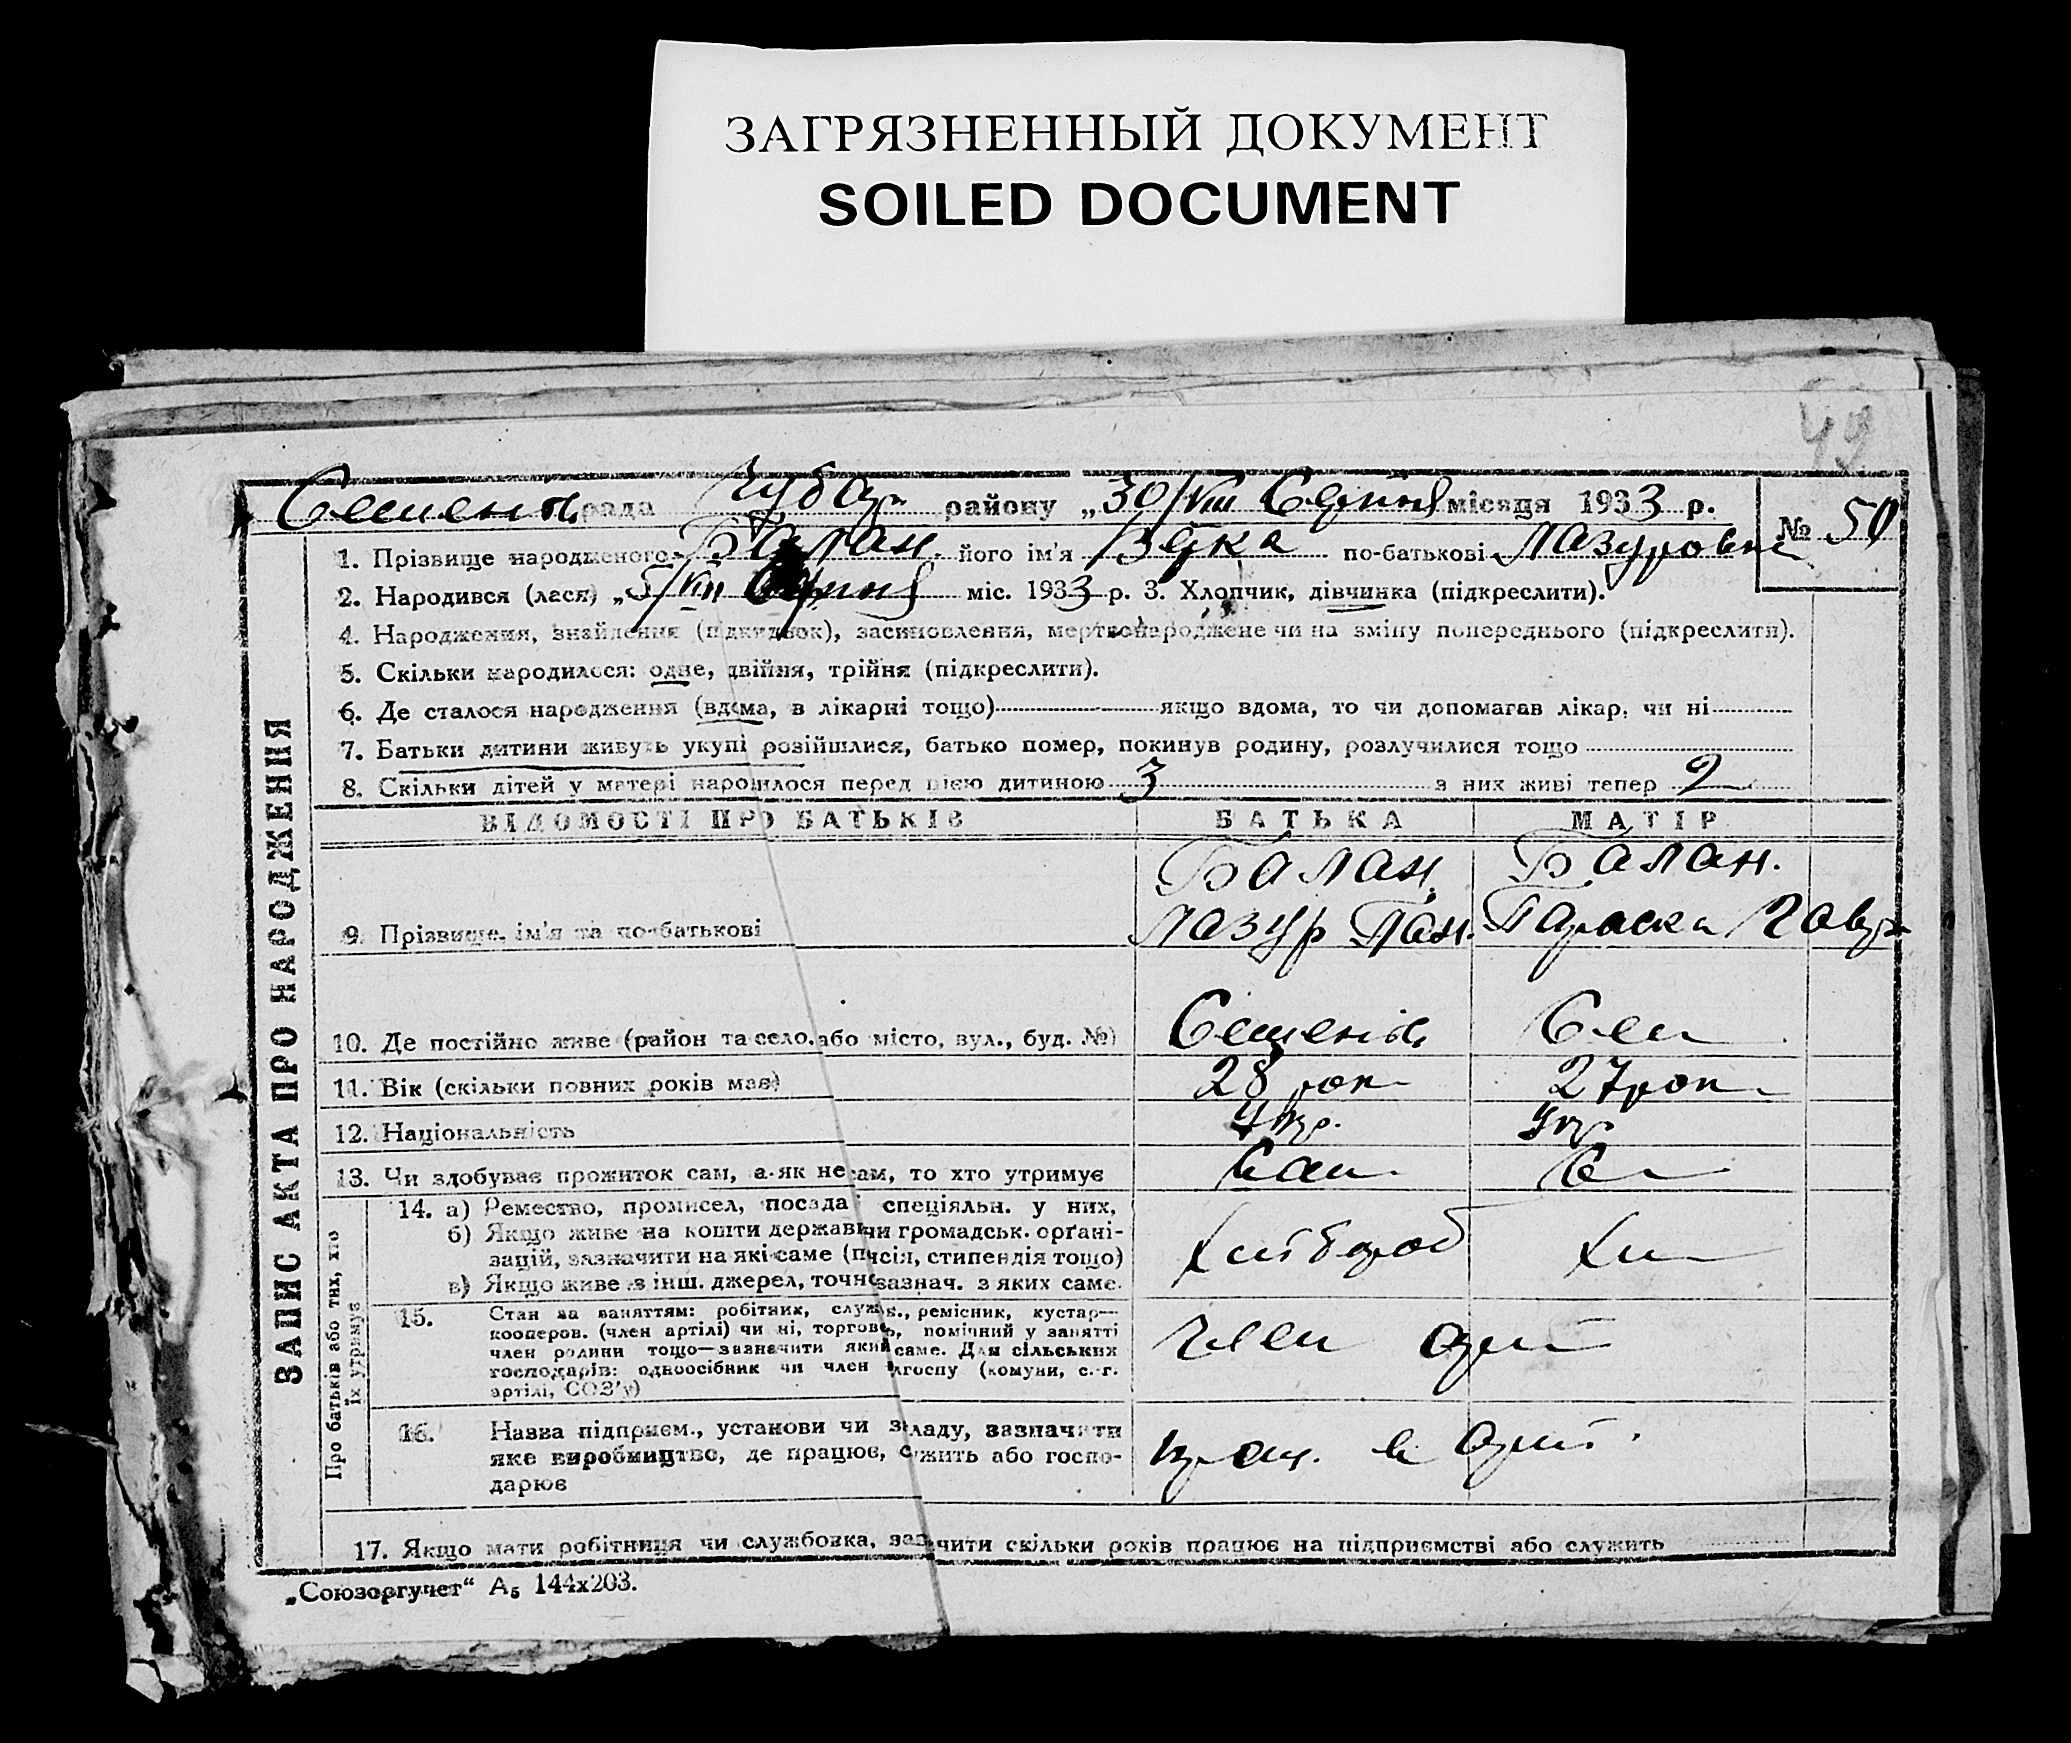 ЗАГРЯЗНЕННЫЙ ДОКУМЕНТ
SOILED DOCUMENT
49
рада Чубар района „30/VIII Серпня місяця 1933 р.
№ 50
1. Прізвище народженого Балан. його ім'я по-батькові Лазуровна
2. Народився (лася) „5/VIII Серпня міс. 1933 р. 3. Хлопчик, дівчинка (підкреслити).
4. Народження, знайдення (підкидьок), засиновлення, мертвонароджене чи на зміну попереднього (підкреслити).
5. Скільки народилося: одне, двійня, трійня (підкреслити).
6. Де сталося народження (вдома, в лікарні тощо) якщо вдома, то чи допомагав лікар, чи ні
7. Батьки дитини живуть укупі розійшлися, батько помер, покинув родину, розлучилися тощо
8. Скільки дітей у матері народилося перед цією дитиною 3 з них живі тепер 2
ЗАПИС АКТА ПРО НАРОДЖЕННЯ
ВІДОМОСТІ ПРО БАТЬКІВ БАТЬКА МАТІР
Балан. Балан.
9. Прізвище, ім'я та по-батькові Лазур Пан. Параска Гавр
10. Де постійно живе (район та село або місто, вул., буд. №)
11. Вік (скільки повних років має) 28 рок 27 рок
12. Національність Укр. Укр
13. Чи здобуває прожиток сам, а як не сам, то хто утримує Сам
Про батьків або тих, хто їх утримує
14. а) Ремество, промисел, посада і спеціяльн. у них,
б) Якщо живе на кошти держави чи громадськ. орґані-
зацій, зазначити на які саме (пенсія, стипендія тощо)
в) Якщо живе з інш. джерел, точно зазнач. з яких саме.
Хлібороб
15. Стан за заняттям: робітник, служб., ремісник, кустар—
кооперов. (член артілі) чи ні, торговець, помічний у занятті
член родини тощо—зазначити який саме. Для сільських
господарів: одноосібник чи член колгоспу (комуни, с.-г.
артілі, СОЗ'у)
член
16. Назва підприєм., установи чи закладу, зазначити
яке виробництво, де працює, служить або госпо-
дарює
прац. в
17. Якщо мати робітниця чи службовка, зазначити скільки років працює на підприємстві або служить
„Союзоргучет“ А₅ 144х203.